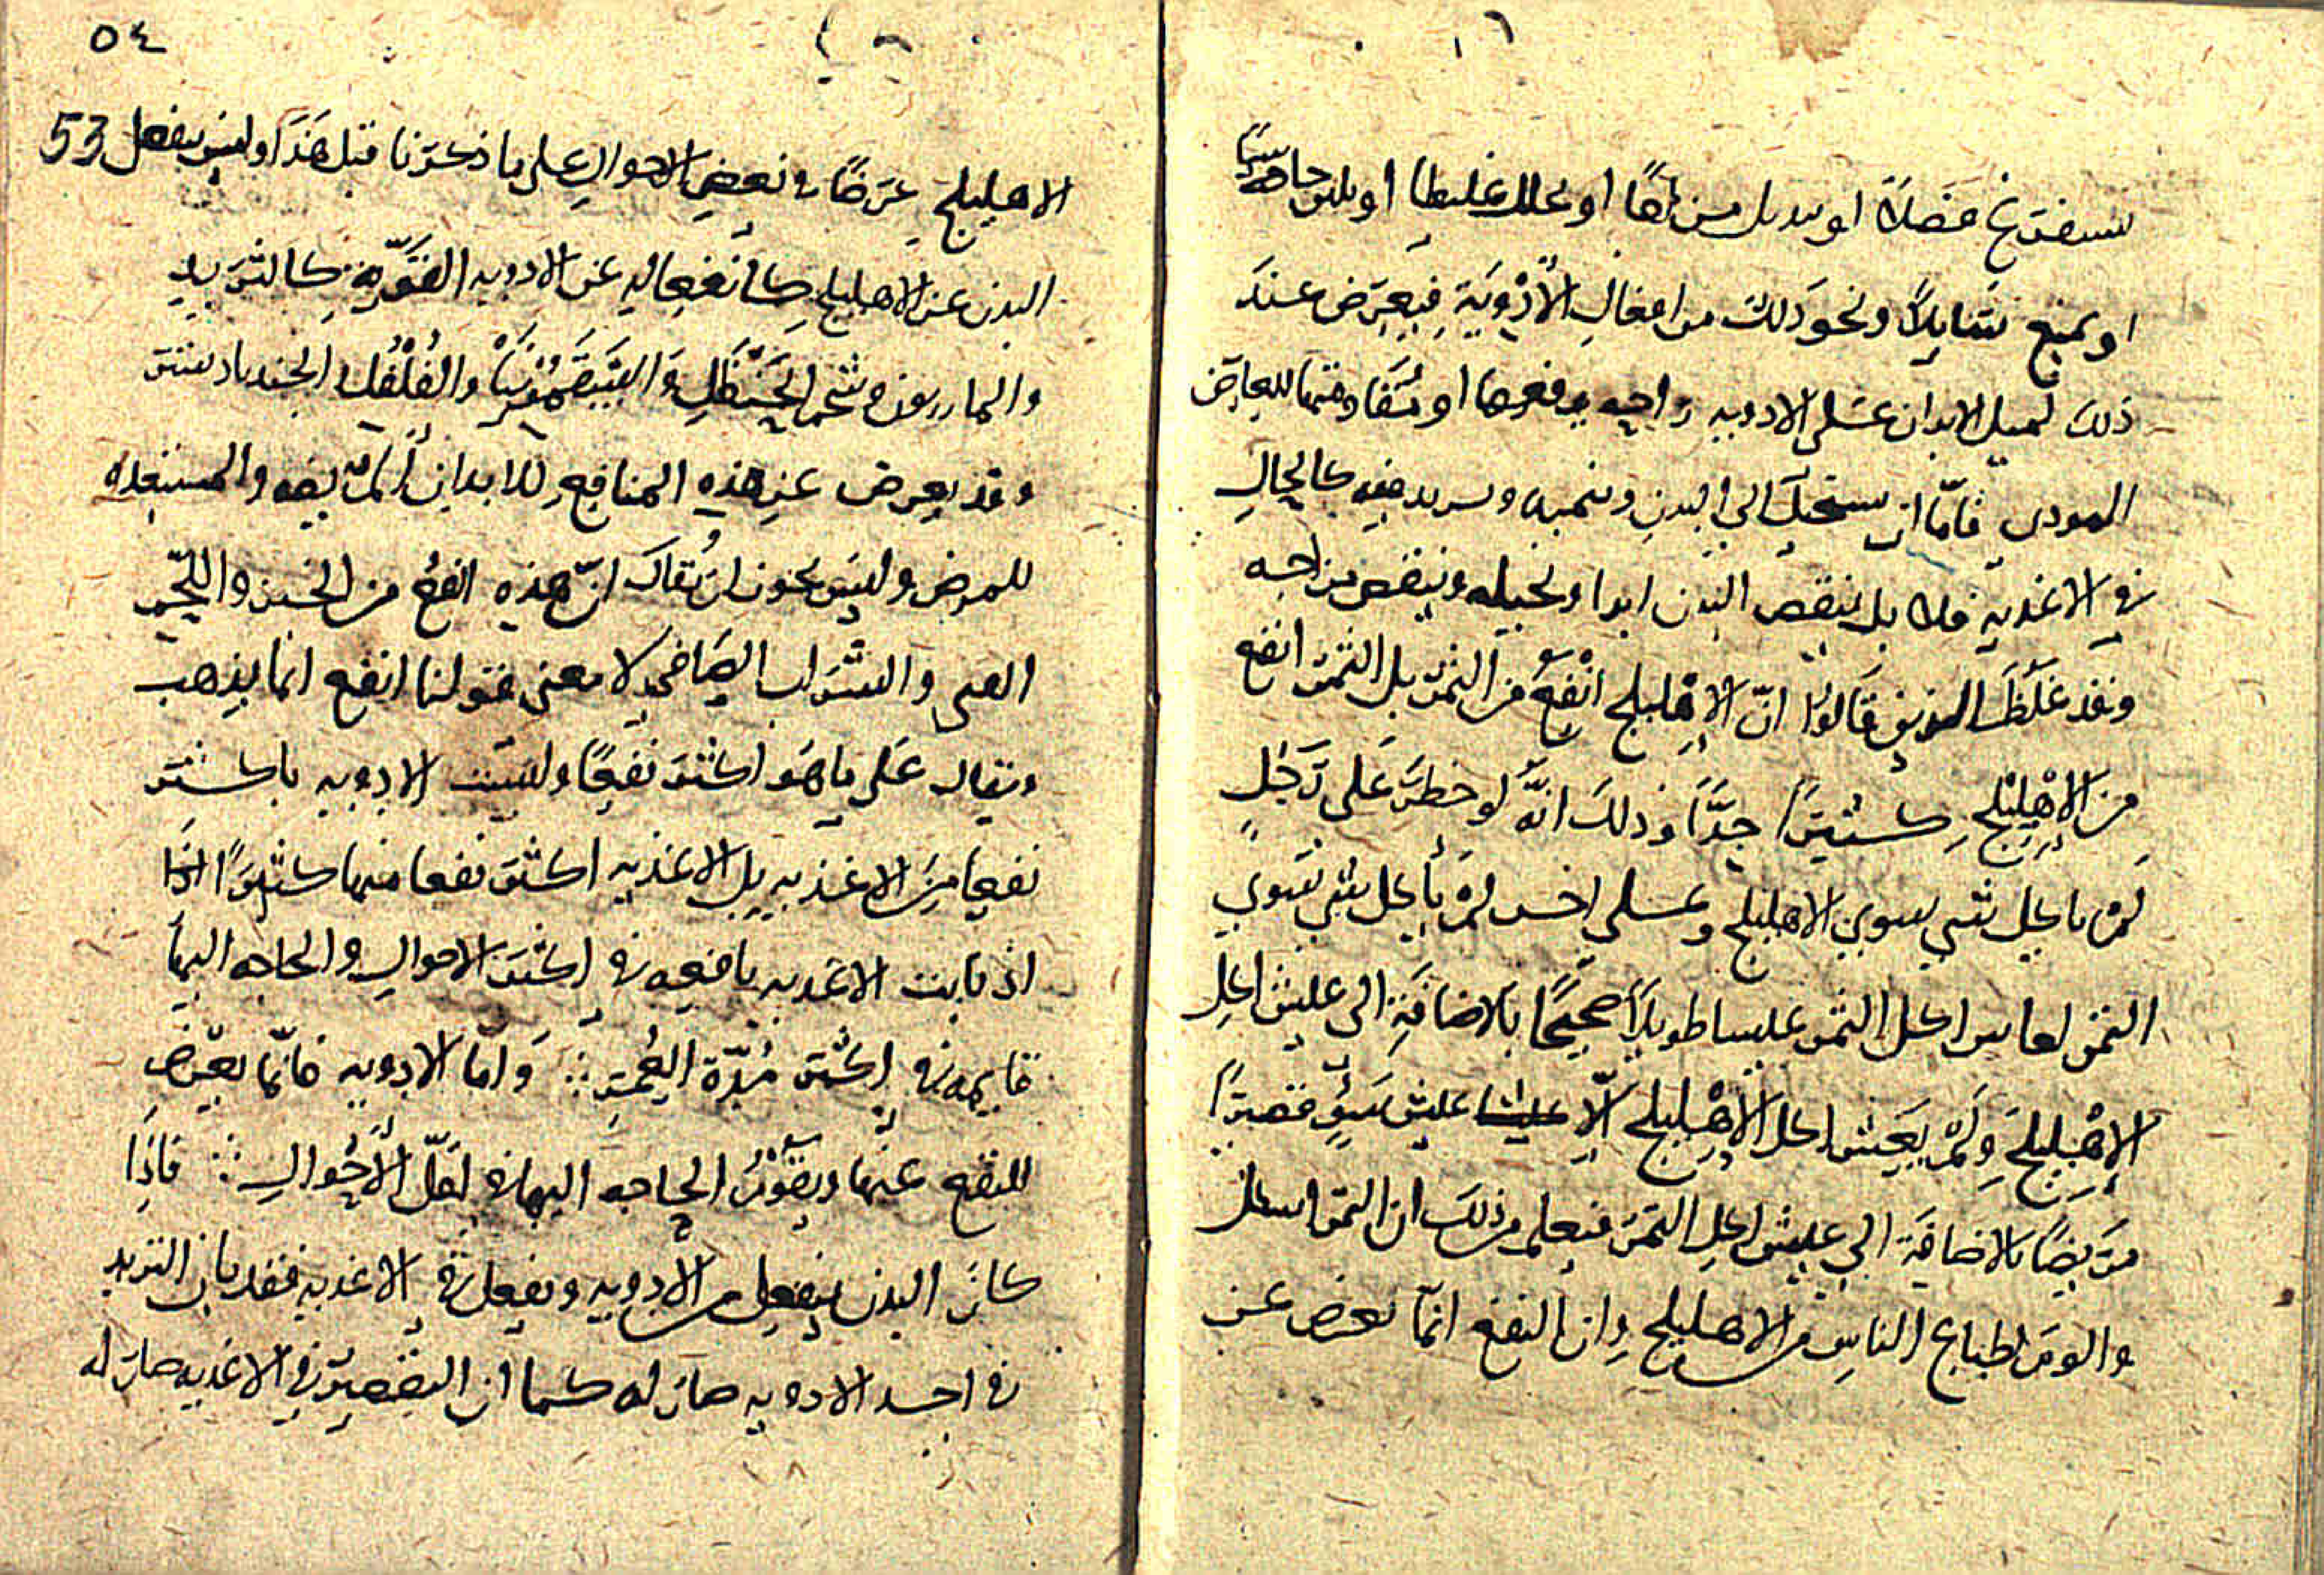 يستفرغ فضلا او يبدل مزاجا او يحلل غليظا او يلين جاسيا
او يمنع سايلا ونحو ذلك من افعال الأدوية فيعرض عند
ذلك لميل الابدان الادويه او للعارض
المودي فامّا ان يستحيل الى البدن وينميه ويزيد فيه كالحال
في الاغذيه فلا بل ينقص البدن ابدا وينقص مزاجه
وقد غلظ الذين قالوا انّ الإهليلج انفع من التمر بل التمر انفع
من الإهليلج كثيرًا جدًّا وذلك انّه لو حظر على رجل
لم ياكل شي سوي الاهليلج وعلى اخر لم يأكل شي سوي
التمر لعاش اكل التمر عيشا طويلاً صحيحًا بالاضافة الى عيش اكل
الإهليلج ولم يعش اكل الإهليلج إلّا عيش سوء قصيرًا
مريضًا بالاضافة الى عيش اكل التمر فيعلم من ذلك ان التمر
لطباع الناس من الاهليلج وان النفع انمّا يعرض عن
٥٤
53
الاهليلج عرضًا في بعض الاحوال على ما ذكرنا قبل هذا وليس ينفعل
البدن عن الاهليلج كانفعاله عن الادويه القوية كالتربد
والمازريون وشحم الحنظل والسقمونيا والفلفل والجندبادستر
وقد يعرض عن هذه المنافع للابدان المريضه والمستعده
للمرض وليس يجوز ان يقال انّ هذه انفع من الخبز واللّحم
والشراب الصافي لا معنى قولنا انفع انما يذهب
ويقال على ما هو اكثر نفعًا وليست الادويه باكثر
نفعا من الاغذيه بل الاغذيه اكثر نفعا منها كثيرًا اذا
اذ كانت الاغذيه نافعه في اكثر الاحوال والحاجه اليها
قايمه في اكثر مدّة العمر ∴ وامّا الادويه فانّما يعرض
النفع عنها ويكون الحاجه اليها في اقلّ الأحوال ∴ فاذا
كان البدن ينفعل من الادويه ويفعل في الاغذيه فقد بان التزيد
في احد الادويه ضار له كما ان التقصير في الاغذيه ضار له